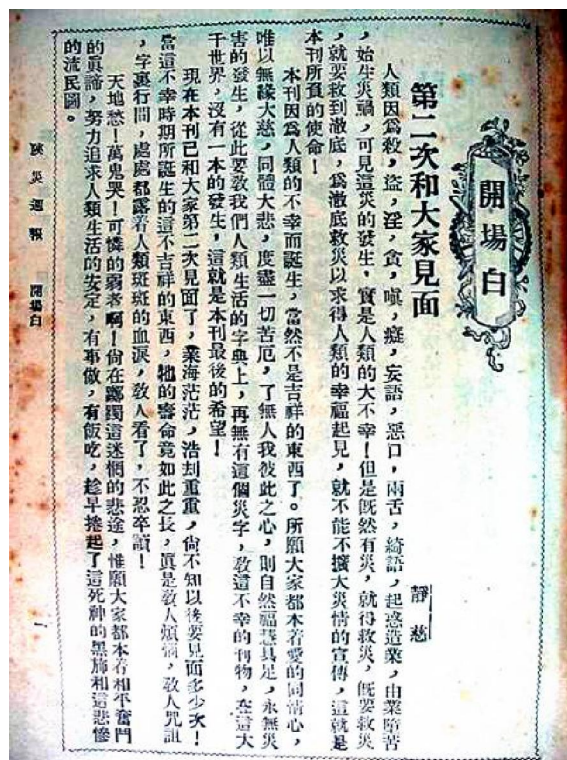 開場白
第二次和大家見面
靜慈
人類因爲殺，盜，淫，貪，嗔，癡，妄語，惡口，兩舌，綺語，起惑造業，由業障苦
，始生災禍，可見這災的發生，實是人類的大不幸！但是既然有災，就得救災，既要救災
，就要救到澈底，爲澈底救災以求得人類的幸福起見，就不能不擴大災情的宣傳，這就是
本刊所負的使命！
本刊因爲人類的不幸而誕生，當然不是吉祥的東西了。所願大家都本着愛的同情心，
唯以無緣大慈，同體大悲，度盡一切苦厄，了無人我彼此之心，則自然福慧具足，永無災
害的發生，從此要教我們人類生活的字典上，再無有這個災字，教這不幸的刊物，在這大
千世界，沒有一本的發生，這就是本刊最後的希望！
現在本刊已和大家第二次見面了，業海茫茫，浩刦重重，尙不知以後要見面多少次！
當這不幸時期所誕生的這不吉祥的東西，牠的壽命竟如此之長，眞是敎人煩惱，敎人咒詛
，字裏行間，處處都露着人類斑斑的血淚，敎人看了，不忍卒讀！
天地愁！萬鬼哭！可憐的弱者啊！尙在躑躅這迷惘的悲途，惟願大家都本着和平奮鬥
的眞諦，努力追求人類生活的安定，有事做，有飯吃，趁早捲起了這死神的黑旆和這悲慘
的流民圖。
災週報
開場白
一